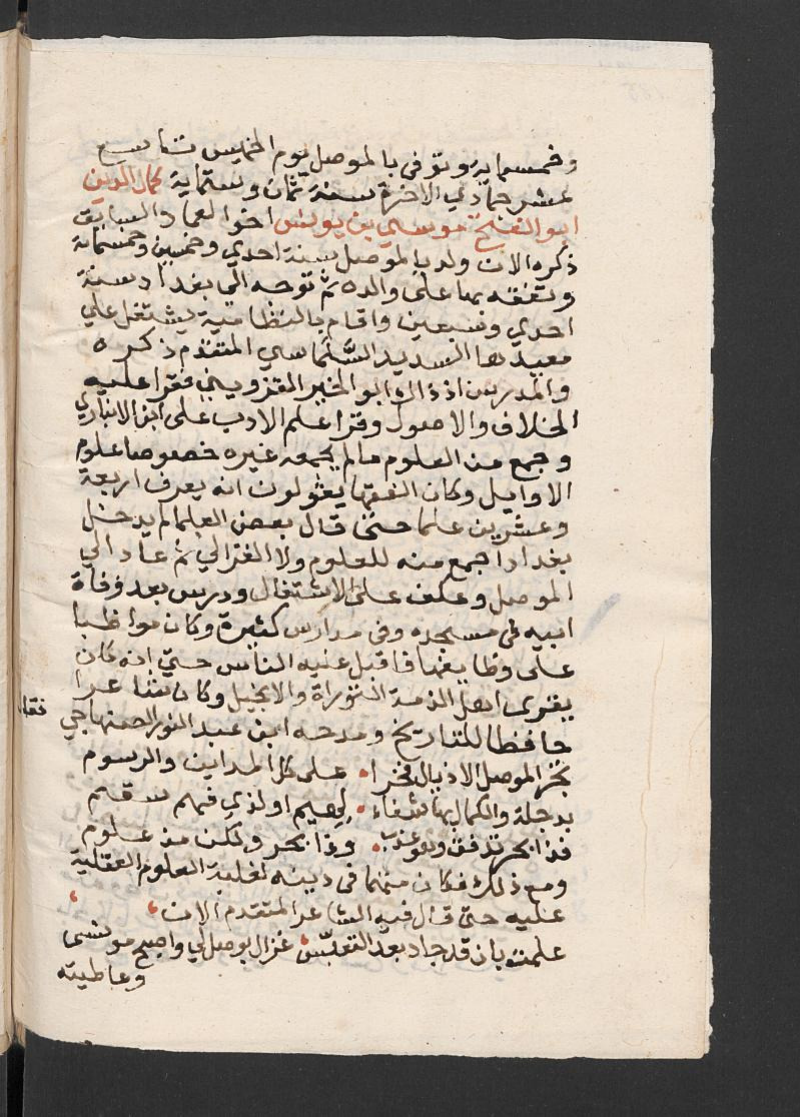 وخمسماية وتوفى بالموصل يوم الخميس تاسع
عشر جمادي الاخرة سنة ثمان وستماية كمال الدين
ابو الفتح موسى بن يونس اخوا لعماد السابق
ذكره الان ولد بالموصل سنة احدي وخمسين وخمسماية
وتفقه بها على والده ثم توجه الى بغداد سنة
احدي وسبعين واقام بالنظامية يشتغل علي
معيدها السديد السَّلَماسي المتقدم ذكره
والمدرس اذ ذاك ابو الخير القزويني فقرا عليه
الخلاف والاصول وقرا علم الادب على ابن الانباري
وجمع من العلوم ما لم يجمعه غيره خصوصا علوم
الاوايل وكان الفقها يقولون انه يعرف اربعة
وعشرين علما حتى قال بعض العلما لم يدخل
بغداد اجمع منه للعلوم ولا الغزالي ثم عاد الي
الموصل وعكف على الاشتغال ودرس بعد وفاة
ابيه في مسجده وفى مدارس كثيرة وكان مواظبا
على وظايفها فاقبل عليه الناس حتى انه كان
يقرى اهل الذمة التوراة والانجيل وكان شاعرا
حافظا للتاريخ ومدحه ابن عبد النور الصنهاجي
فقال
تجر الموصل الاذيال فخرا على كل المداين والرسوم
بدجلة والكمال بها شفاء لهيم او لذي فهم سقيم
فذا بحر تدفق وهو عذب وذا بحر ولكن من علوم
ومع ذلك فكان متهما فى دينه لغلبة العلوم العقلية
عليه حتى قال فيه الشاعر المتقدم الان
علمت بان قد جاد بعد التعبّس غزال بوصل لي واصبح مونسى
وعاطيته